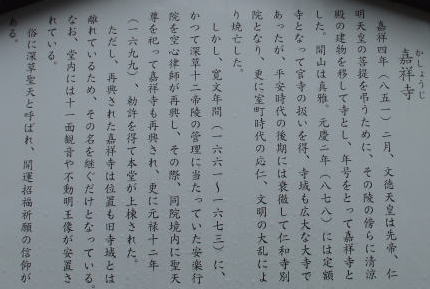 かしょうじ
嘉祥寺
嘉祥四年（八五一）二月、文徳天皇は先帝、仁
明天皇の菩提を弔うために、その陵の傍らに清涼
殿の建物を移して寺とし、年号をとって嘉祥寺と
した。開山は真雅。元慶二年（八七八）には定額
寺となって官寺の扱いを得、寺域も広大な大寺で
あったが、平安時代の後期には衰微して仁和寺別
院となり、更に室町時代の応仁、文明の大乱によ
り焼亡した。
しかし、寛文年間（一六六一〜一六七三）に、
かつて深草十二帝陵の管理に当たっていた安楽行
院を空心律師が再興し、その際、同院境内に聖天
尊を祀って嘉祥寺も再興され、更に元禄十二年
（一六九九）、勅許を得て本堂が上棟された。
ただし、再興された嘉祥寺は位置も旧寺域とは
離れているため、その名を継ぐだけとなっている。
なお、堂内には十一面観音や不動明王像が安置さ
れている。
俗に深草聖天と呼ばれ、開運招福祈願の信仰が
ある。